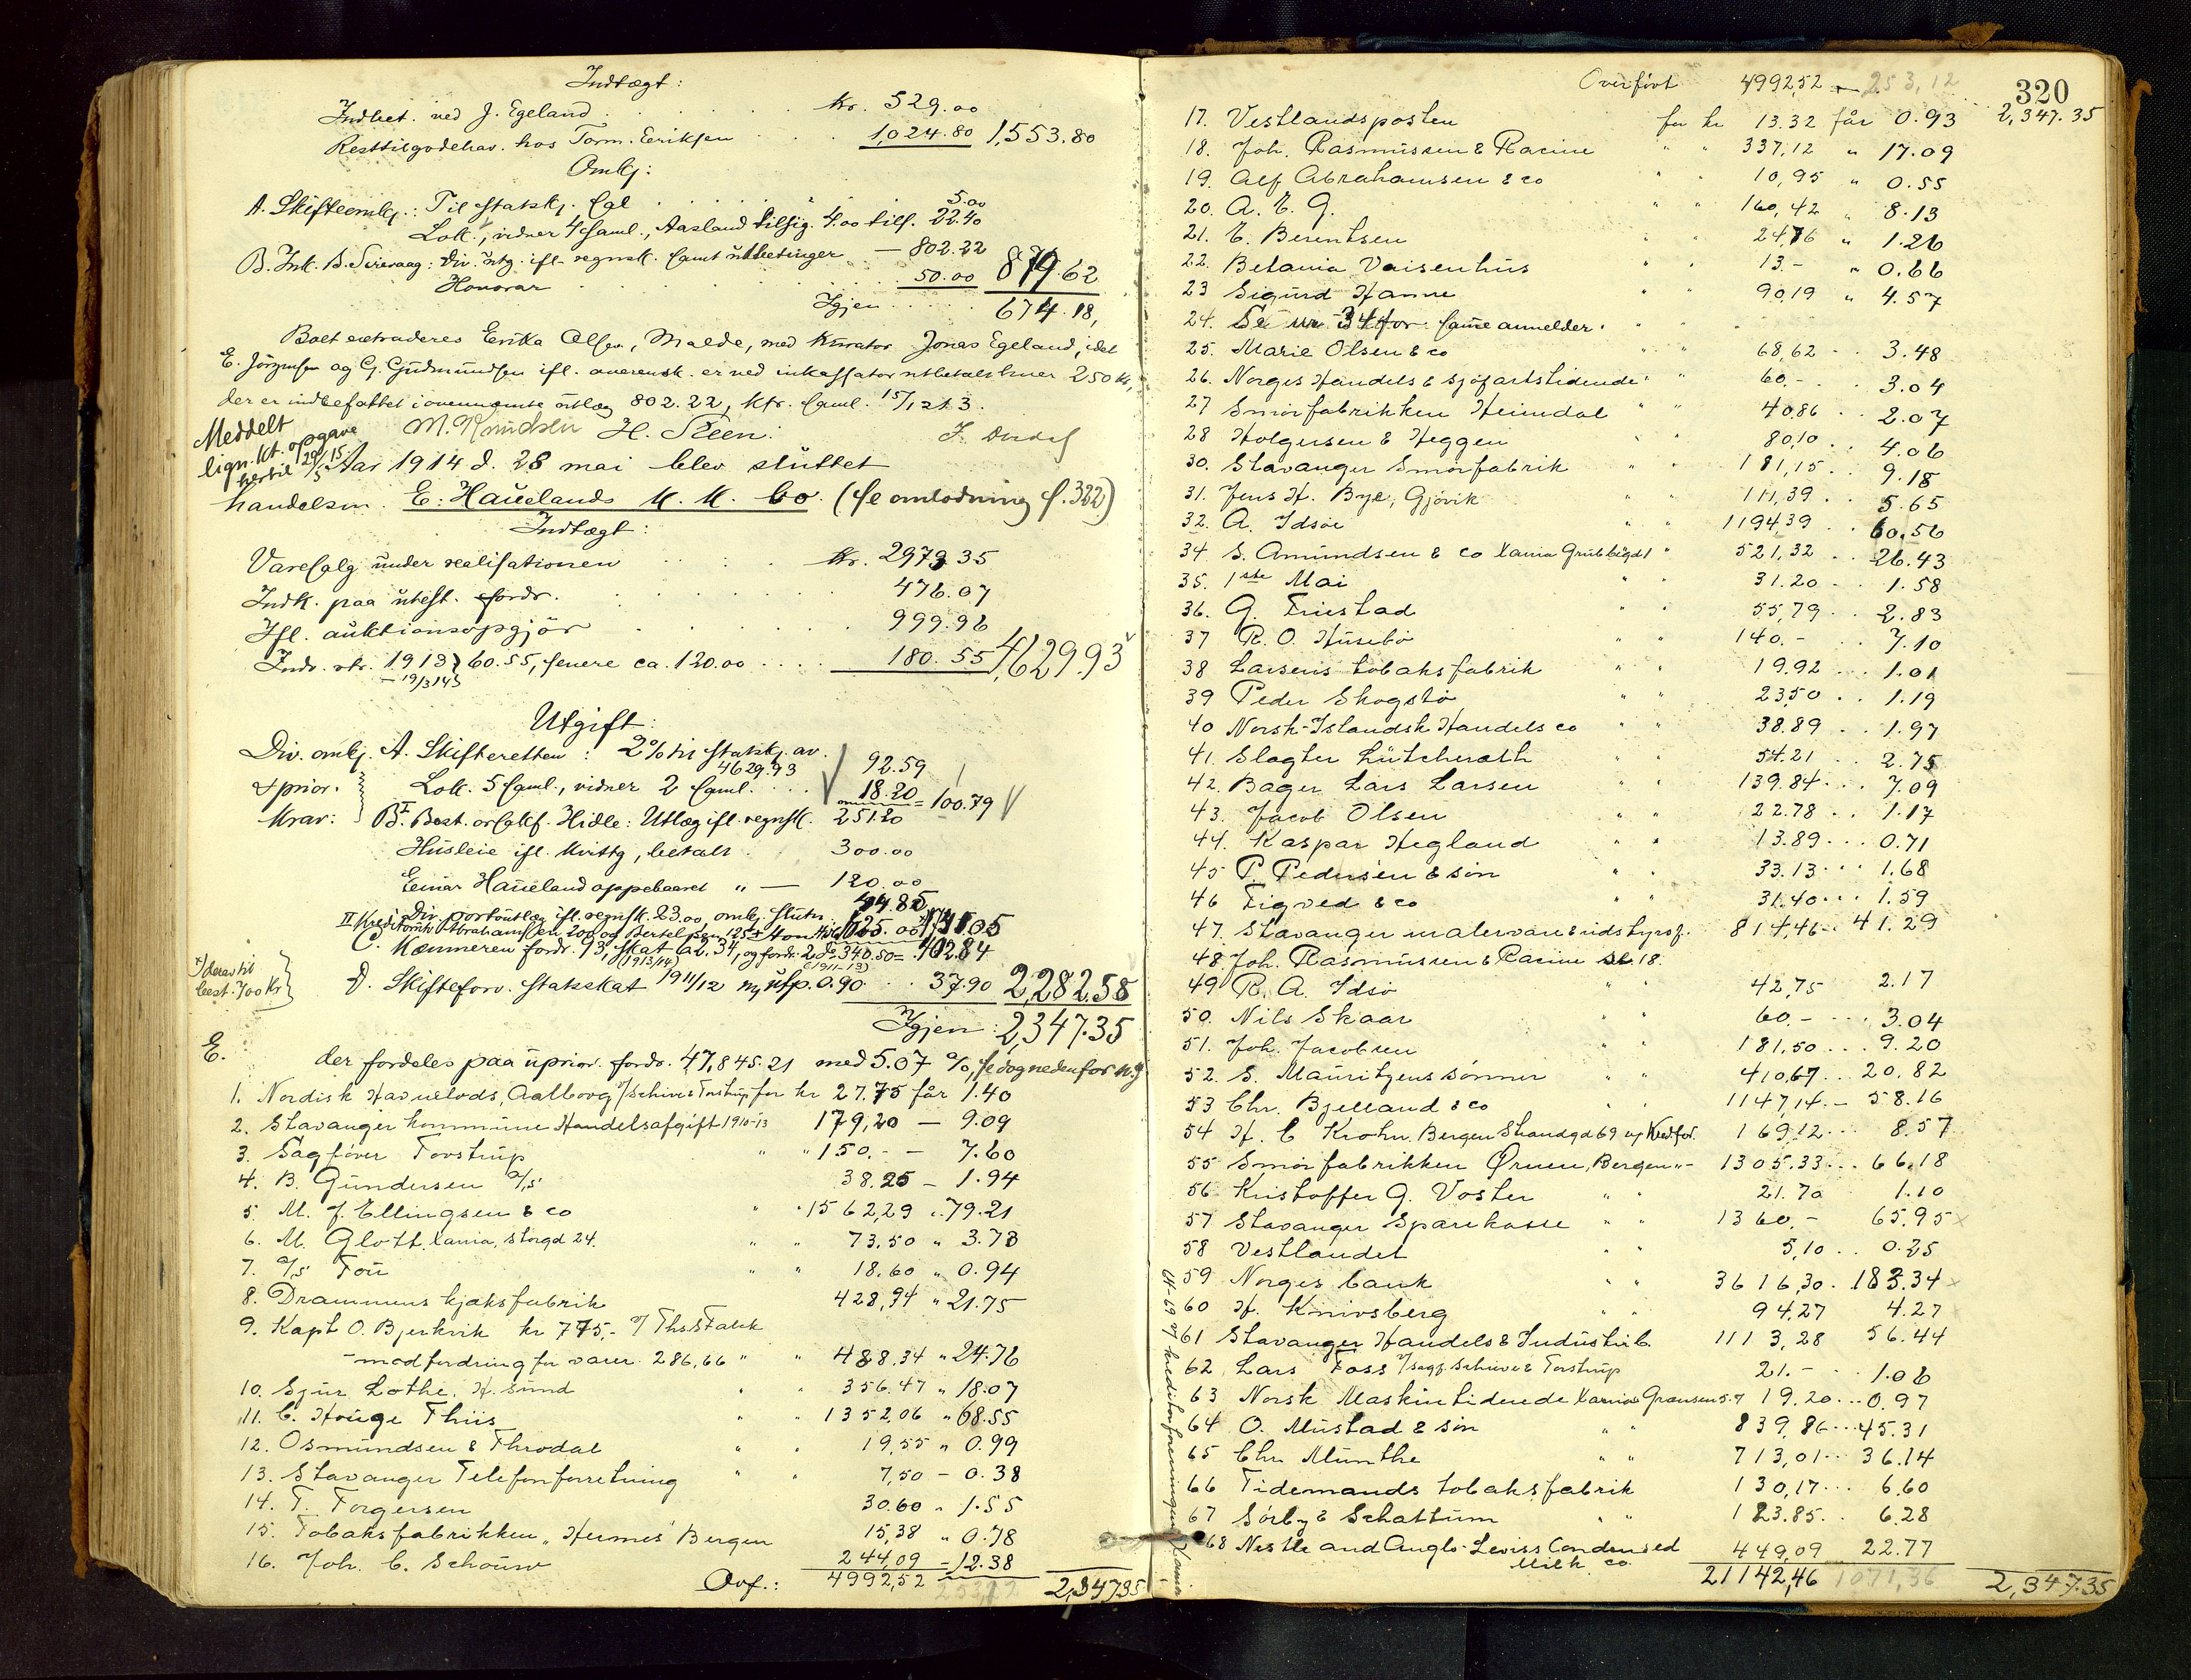 Indtægt:
Indbet. ved J. Egeland . . . . kr. 529.00
Resttilgodehav. hos Torm. Eriksen . . . 1,024.80 1,553.80
Omkj:
A. Skifteomkj.: Til statskj. Cal . . . . 5.00
Lok., vidner 4 saml., Aasland tilsig. 4.00 tils. 22.40
B. Ink. B. Sirevaag: Div. utg. ifl. regnsk. samt utbetinger — 802.22
Honorar . . . . 50.00 879.62
Igjen . . . 674.18,
Boet extraderes Erika Olsen, Malde, med kurator Jonas Egeland, idet
E. Jörgensen og G. Gudmundsen ifl. overensk. er ved inkassator utbetalt hver 250 kr,
der er indbefattet i ovennævnte utlæg 802.22, kfr. saml. 15/12 13.
Meddelt
lign.kt. opgave
hertil 29/5 15
M. Knudsen H. Steen:
Aar 1914 d. 28 mai blev sluttet
handelsm. E. Hauelands K. K. bo. (se omlodning f. 322)
Indtægt:
Varesalg under realisationen . . . kr. 2973.35
Indk. paa utest. fordr. . . . 476.07
Ifl. auktionsopgjör . . . 999.96
Indr. rtr. 1913 60.55, senere ca. 120.00 . . . 180.55 4,629.93
— 19/3 14
Utgift:
Div. omkj. A. Skifteretten: 2% til statskj. av
4629.93 92.59
+ prior. Lok. 5 saml., vidner 2 saml. . . 18.20 = 100.79
krav: B. I. Best. orsakf. Hidle: Utlæg ifl. regnsk. 251.20
Husleie ifl. kvittg, betalt . . 300.00
Einar Haueland oppebaaret " — 120.00
Div. portoutlæg ifl. regnsk. 23.00, omkj. slutn. 44.85
II Kreditomk. Abrahamsen 200 og Bertelsen 125 + Hon. Hidle 625.00
C. Kæmneren fordr. 93, skat 62.34, og fordr. 2 do 340.50 = 402.84
(1913/14) (1911-13)
*) derav til
best. 700 kr
D. Skifteforv. statsskat 1911/12 m/ utp. 0.90 . . 37.90 2,282.58
Igjen: 2,347.35
E. der fordeles paa uprior. fordr. 47,845.21 med 5.07 %, se dog nedenfor n. 9
1. Nordisk Havuelods, Aalborg v/ Schive & Torstrup for kr 27.75 får 1.40
2. Stavanger kommune Handelsafgift 1910-13 179,20 — 9.09
3. Sagförer Torstrup " " 150.- — 7.60
4. B. Gundersen A/S 38.25 — 1.94
5. M. J. Ellingsen & co " " 1562,29 " 79.21
6. M. Glott Xania, Storgd 24. " " 73,50 " 3.73
7. A/S Tou " " 18.60 " 0.94
8. Drammens kjæksfabrik 428,94 " 21.75
9. Kapt O. Bjerkvik kr 775,- v/ Ths S Falck
- modfordring for varer 286,66 " " 488,34 " 24.76
10. Sjur Lothe, H. sund " " 356.47 " 18.07
11. C. Houge Thiis " " 1352,06 " 68.55
12. Osmundsen & Throdal " " 19,55 " 0.99
13. Stavanger Telefonforretning " " 7,50 — 0.38
14. T. Torgersen 30.60 " 1.55
15. Tobaksfabrikken "Hermes" Bergen 15,38 " 0.78
16. Joh. C. Schouw 244,09 — 12.38
Ovf.: 4992,52 253,12 2,347.35
320
Overfört 4992,52 — 253,12
17. Vestlandsposten for kr 13.32 får 0.93 2,347.35
18. Joh. Rasmussen & Racine " " 337,12 " 17.09
19. Alf Abrahamsen & co " " 10,95 " 0.55
20. A. T. G. " " 160,42 " 8.13
21. T. Berentsen " " 24,76 " 1.26
22. Betania Vaisenhus " " 13.- " 0.66
23 Sigurd Hanne " " 90,19 " 4.57
24. Se nr 34 for samme anmelder. " "
25. Marie Olsen & co " " 68,62 . . 3.48
26. Norges Handels & sjöfartstidende " " 60.- . . 3.04
27 Smörfabrikken Heimdal " " 40,86 . . 2.07
28 Holgersen & Heggen " " 80,10 . . 4.06
30. Stavanger Smörfabrik " " 181,15 . . 9.18
31. Jens H. Bye, Gjövik " " 111,39 . . 5.65
32. A. Idsöe " " 1194,39 . . 60.56
34 S. Amundsen & co Xania Grubbegd 1 " 521,32 . . 26.43
35. 1ste Mai " " 31.20 . . 1.58
36. G. Friestad " " 55,79 . . 2.83
37 R. O. Husebö " " 140.- . . 7.10
38 Larsens tobaksfabrik " " 19.92 . . 1.01
39 Peder Skogstö " " 23,50 . . 1.19
40 Norsk-Islandsk Handels co " " 38.89 . . 1.97
41. Slagter Lütcherath " 54.21 . . 2.75
42. Bager Lars Larsen " " 139.84 . . 7.09
43. Jacob Olsen " " 22.78 . . 1.17
44. Kaspar Hegland " " 13.89 . . 0.71
45 P. Pedersen & sön " " 33.13 . . 1.68
46 Figved & co " " 31.40 . . 1.59
47. Stavanger malervare & udstyrsf. 814,46 . . 41.29
48. Joh. Rasmussen & Racine se 18.
49 R. A. Idsö " " 42,75 2.17
50. Nils Skaar " " 60.- . . 3.04
51. Joh. Jacobsen " " 181,50 . . 9.20
52. S. Mauritzens sönner " " 410,67 . . 20.82
53 Chr. Bjelland & co " " 1147,14.- 58.16
54 H. C Krohn. Bergen Strandgd 69 v/ Kredfor. 169,12 . . 8.57
55 Smörfabrikken Ørnen, Bergen "- 1305.33 . . 66,18
56 Kristoffer G. Voster " " 21.70 1.10
57 Stavanger Sparekasse " " 1360.- 65.95 x
58 Vestlandet " " 5,10 . . 0.25
59 Norges bank " " 3616,30 . 183.34 x
60 H. Knivsberg " " 94,27 4.27
61 Stavanger Handels & Industrib. 1113,28 56.44
62 Lars Foss v/ sagf. Schiive & Torstrup 21.- . 1.06
63 Norsk Maskintidende Xania Grænsen 5.7 19.20 . . 0.97
64 O. Mustad & sön " " 839,86 . . 45.31
65 Chr. Münthe " " 713,01 . . 36.14
66 Tidemands tobaksfabrik 130,17 . . 6.60
67 Sörby & Schattum " " 123.85 . . 6.28
68 Nestle and Anglo-Swiss Condensed 449,09 22.77
Milk co.
64-69 v/ kreditorforeningen
21142,46 1071,36 2,347.35